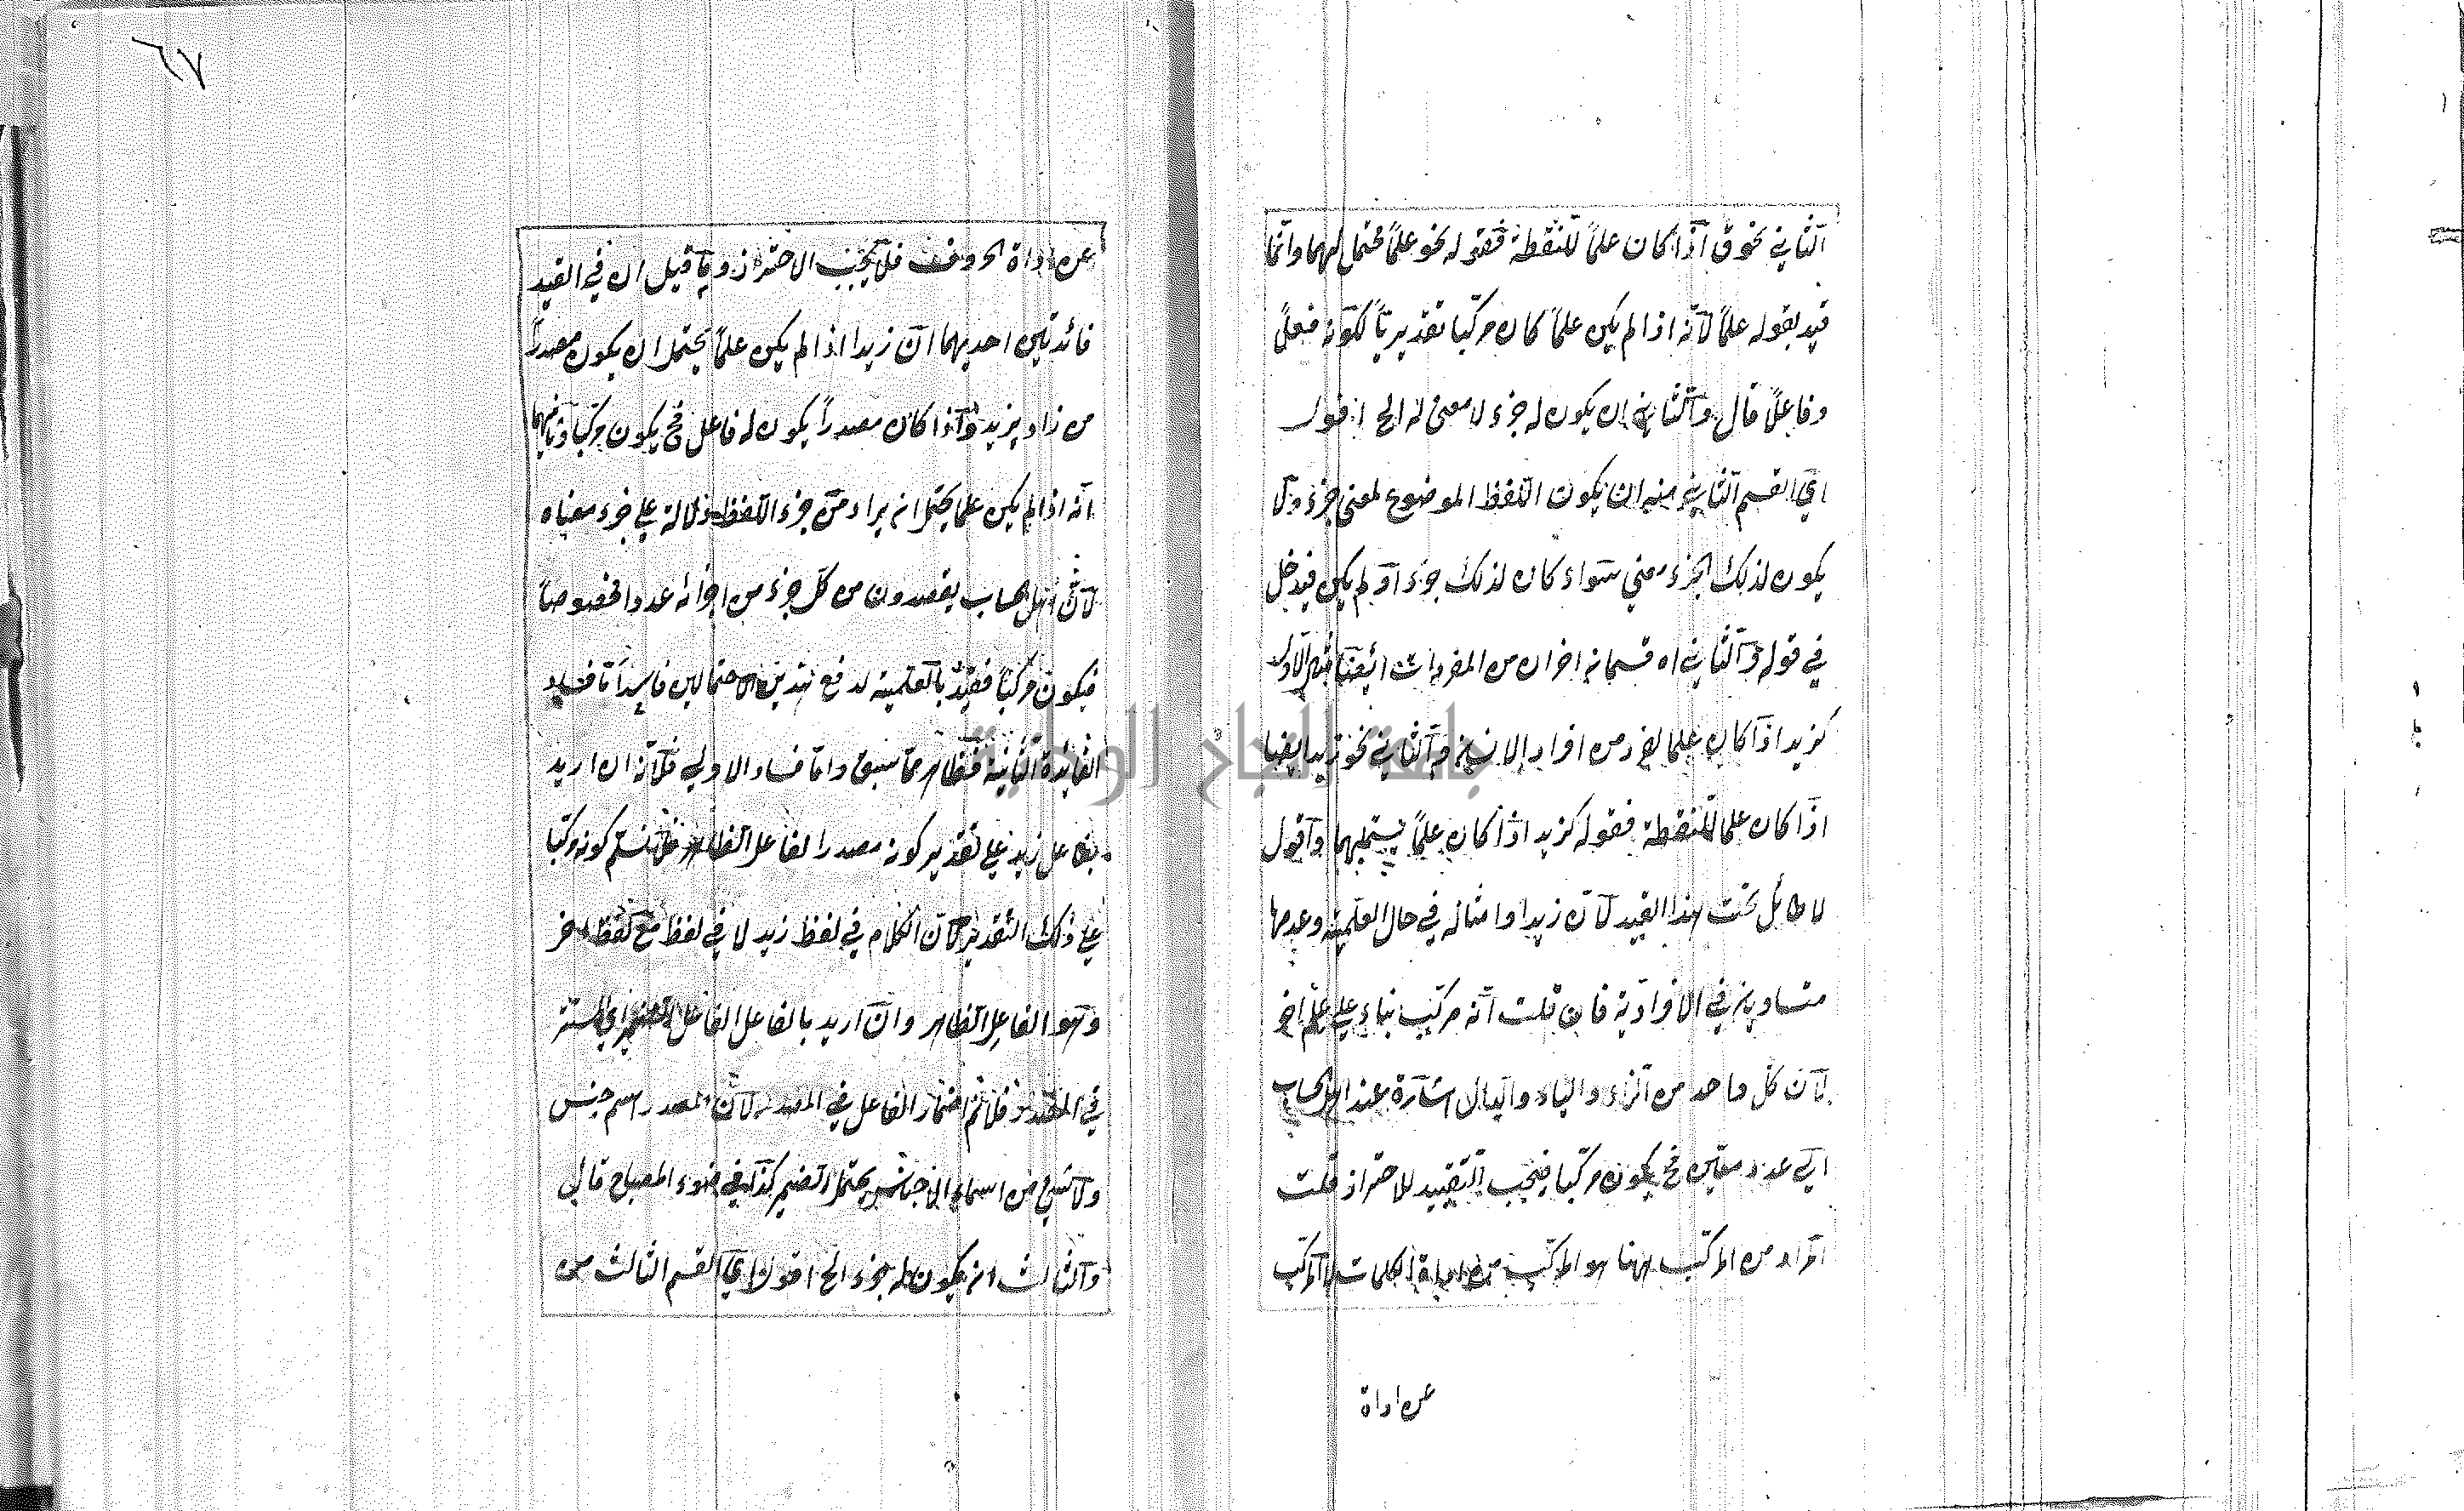 الثاني نحو ق اذا كان علماً للنقطة فقوله نحو علماً محتمل لهما وانما
قيد بقوله علماً لانه اذا لم يكن علماً كان مركبا تقديرياً لكونه فعلاً
وفاعلاً قال والثاني ان يكون له جزء لا معنى له الخ اقول
اي القسم الثاني منه ان يكون اللفظ الموضوع لمعنى جزء ولا
يكون لذلك الجزء معنى سواء كان لذلك جزء او لم يكن فيدخل
في قوله والثاني اه قسمان اخران من المفردات ايضا الاول
كزيد اذا كان علما لفرد من افراد الانسان والثاني نحو زيد ايضا
اذا كان علما للنقطة فقوله كزيد اذا كان علماً يشتملهما واقول
لا طائل تحت هذا القيد لان زيدا وامثاله في حال العلمية وعدمها
متساوية في الافرادية فان قلت انه مركب بناء على علم اخر
لان كل واحد من الزاء والياء والدال اشارة عند اهل الحساب
الى عدد معين فح يكون مركبا فيجب التقييد للاحتراز قلت
المراد من المركب ههنا هو المركب من الكلمات لا المركب
عن اداة
٦٧
عن اداة الحروف فلا يجب الاحتراز وما قيل ان في القيد
فائدتين احديهما ان زيدا اذا لم يكن علماً يحتمل ان يكون مصدراً
من زاد يزيد واذا كان مصدراً يكون له فاعل فح يكون مركبا وثانيهما
انه اذا لم يكن علما يحتمل ان يراد من جزء اللفظ دلالة على جزء معناه
لان اهل الحساب يقصدون من كل جزء من اجزائه عددا مخصوصاً
فيكون مركبا فقيد بالعلمية لدفع هذين الاحتمالين فاسد اما فساد
الفائدة الثانية فظاهر مما سبق واما فساد الاولى فلانه ان اريد
بفاعل زيد على تقدير كونه مصدرا الفاعل الظاهر فلا نسلم كونه مركبا
على ذلك التقدير لان الكلام في لفظ زيد لا في لفظ مع لفظ اخر
وهو الفاعل الظاهر وان اريد بالفاعل الفاعل المضمر اي المستتر
في المصدر فلا ثم اضمار الفاعل في المصدر لان المصدر اسم جنس
ولا شئ من اسماء الاجناس يحتمل الضمير كذا في ضوء المصباح قال
والثالث ان يكون له جزء الخ اقول اي القسم الثالث من
جامعة النجاح الوطنية